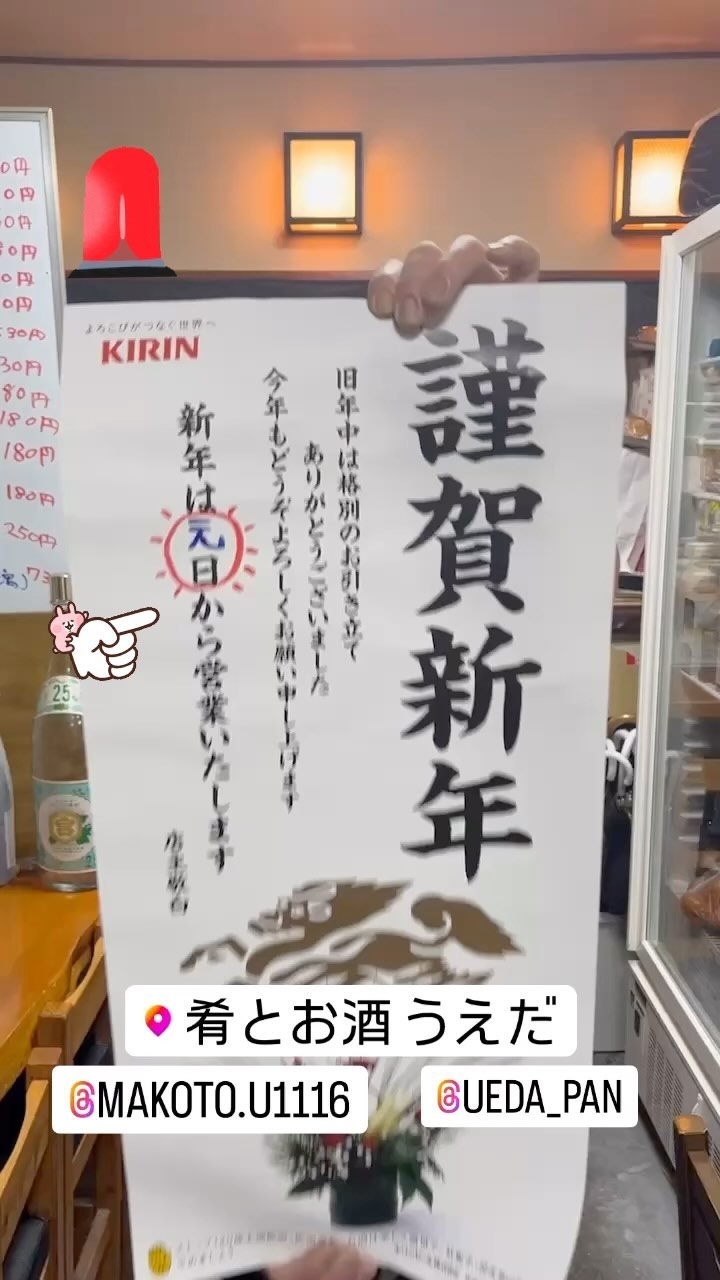 よろこびがつなぐ世界へ
KIRIN
謹賀新年
旧年中は格別のお引き立て
ありがとうございました
今年もどうぞよろしくお願い申し上げます
新年は元日から営業いたします
店主敬白
0円
0円
0円
50円
0円
0円
530円
30円
80円
180円
180円
180円
250円
25
宮
肴とお酒 うえだ
@MAKOTO.U1116
@UEDA_PAN